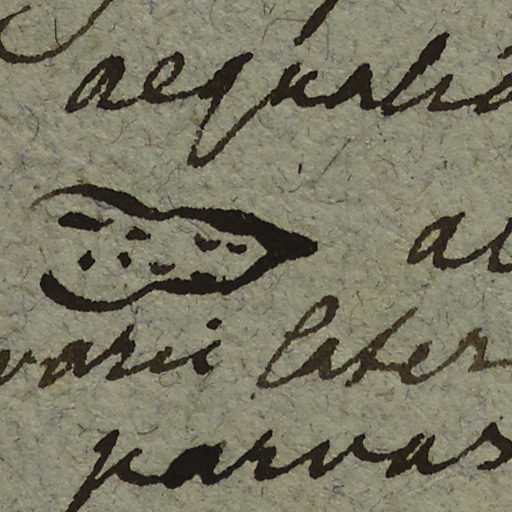 aequalia
a
varii later
parvas